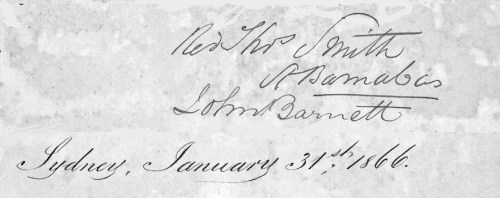 Revd Thos Smith
St Barnabas
John Barnett
Sydney, January 31st. 1866.